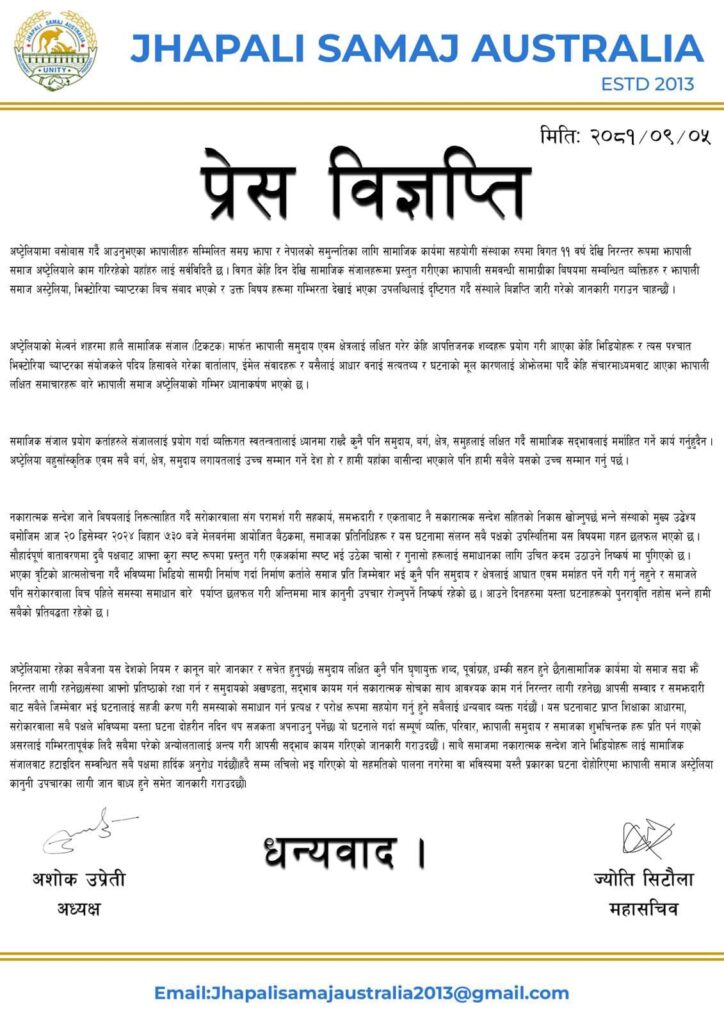 JHAPALI SAMAJ AUSTRALIA
UNITY
JHAPALI SAMAJ AUSTRALIA
ESTD 2013
मिति: २०८१/०९/०५
प्रेस विज्ञप्ति
अष्ट्रेलियामा बसोबास गर्दै आउनुभएका झापालीहरु सम्मिलित समग्र झापा र नेपालको समुन्नतिका लागि सामाजिक कार्यमा सहयोगी संस्थाका रुपमा विगत ११ वर्ष देखि निरन्तर रूपमा झापाली
समाज अष्ट्रेलियाले काम गरिरहेको यहाँहरु लाई सर्वविदितै छ । विगत केहि दिन देखि सामाजिक संजालहरूमा प्रस्तुत गरीएका झापाली समवन्धी सामाग्रीका बिषयमा सम्बन्धित व्यक्तिहरु र झापाली
समाज अस्ट्रेलिया, भिक्टोरिया च्याप्टरका बिच संबाद भएको र उक्त बिषय हरूमा गम्भिरता देखाई भएका उपलब्धिलाई दृष्टिगत गर्दै संस्थाले विज्ञप्ति जारी गरेको जानकारी गराउन चाहन्छौं ।
अष्ट्रेलियाको मेल्बर्न शहरमा हालै सामाजिक संजाल (टिकटक) मार्फत झापाली समुदाय एवम क्षेत्रलाई लक्षित गरेर केहि आपत्तिजनक शब्दहरू प्रयोग गरी आएका केहि भिडियोहरू र त्यस पश्चात
भिक्टोरिया च्याप्टरका संयोजकले पदिय हिसावले गरेका वार्तालाप, ईमेल संवादहरू र यसैलाई आधार वनाई सत्यतथ्य र घटनाको मूल कारणलाई ओझेलमा पार्दै केहि संचारमाध्यमवाट आएका झापाली
लक्षित समाचारहरू बारे झापाली समाज अष्ट्रेलियाको गम्भिर ध्यानाकर्षण भएको छ ।
समाजिक संजाल प्रयोग कर्ताहरुले संजाललाई प्रयोग गर्दा व्यक्तिगत स्वतन्त्रतालाई ध्यानमा राख्दै कुनै पनि समुदाय, बर्ग, क्षेत्र, समुहलाई लक्षित गर्दै सामाजिक सद्भावलाई मर्माहित गर्ने कार्य गर्नुहुदैन ।
अष्ट्रेलिया बहुसाँस्कृतिक एवम सबै बर्ग, क्षेत्र, समुदाय लगायतलाई उच्च सम्मान गर्ने देश हो र हामी यहाँका बासीन्दा भएकाले पनि हामी सबैले यसको उच्च सम्मान गर्नु पर्छ ।
नकारात्मक सन्देश जाने बिषयलाई निरूत्साहित गर्दै सरोकारवाला संग परामर्श गरी सहकार्य, समझदारी र एकताबाट नै सकारात्मक सन्देश सहितको निकास खोज्नुपर्छ भन्ने संस्थाको मुख्य उद्धेश्य
बमोजिम आज २० डिसेम्बर २०२४ बिहान ७:३० बजे मेलबर्नमा आयोजित बैठकमा, समाजका प्रतिनिधिहरू र यस घटनामा संलग्न सबै पक्षको उपस्थितिमा यस बिषयमा गहन छलफल भएको छ ।
सौहार्दपूर्ण वातावरणमा दुबै पक्षबाट आफ्ना कुरा स्पष्ट रूपमा प्रस्तुत गरी एकअर्कामा स्पष्ट भई उठेका चासो र गुनासो हरूलाई समाधानका लागि उचित कदम उठाउने निष्कर्ष मा पुगिएको छ ।
भएका त्रुटिको आत्मलोचना गर्दै भविष्यमा भिडियो सामग्री निर्माण गर्दा निर्माण कर्ताले समाज प्रति जिम्मेवार भई कुनै पनि समुदाय र क्षेत्रलाई आघात एवम मर्माहत पर्ने गरी गर्नु नहुने र समाजले
पनि सरोकारवाला बिच पहिले समस्या समाधान बारे पर्याप्त छलफल गरी अन्तिममा मात्र कानुनी उपचार रोज्नुपर्ने निष्कर्ष रहेको छ । आउने दिनहरुमा यस्ता घटनाहरूको पुनरावृत्ति नहोस भन्ने हामी
सबैको प्रतिबद्धता रहेको छ ।
अष्ट्रेलियामा रहेका सबैजना यस देशको नियम र कानून बारे जानकार र सचेत हुनुपर्छ। समुदाय लक्षित कुनै पनि घृणायुक्त शब्द, पूर्वाग्रह, धम्की सहन हुने छैन।सामाजिक कार्यमा यो समाज सदा झैं
निरन्तर लागी रहनेछ।संस्था आफ्नो प्रतिष्ठाको रक्षा गर्न र समुदायको अखण्डता, सद्भाव कायम गर्न सकारात्मक सोचका साथ आवश्यक काम गर्न निरन्तर लागी रहनेछ। आपसी सम्वाद र समझदारी
बाट सबैले जिम्मेवार भई घटनालाई सहजी करण गरी समस्याको समाधान गर्न प्रत्यक्ष र परोक्ष रूपमा सहयोग गर्नु हुने सबैलाई धन्यवाद व्यक्त गर्दछौं । यस घटनाबाट प्राप्त शिक्षाका आधारमा,
सरोकारवाला सबै पक्षले भविष्यमा यस्ता घटना दोहरीन नदिन थप सजकता अपनाउनु पर्नेछ। यो घटनाले गर्दा सम्पूर्ण व्यक्ति, परिवार, झापाली समुदाय र समाजका शुभचिन्तक हरु प्रति पर्न गएको
असरलाई गम्भिरतापूर्वक लिदै सबैमा परेको अन्योलतालाई अन्त्य गरी आपसी सद्भाव कायम गरिएको जानकारी गराउदछौं । साथै समाजमा नकारात्मक सन्देश जाने भिडियोहरू लाई सामाजिक
संजालबाट हटाइदिन सम्बन्धित सबै पक्षमा हार्दिक अनुरोध गर्दछौं।हदै सम्म लचिलो भइ गरिएको यो सहमतिको पालना नगरेमा वा भविस्यमा यस्तै प्रकारका घटना दोहोरिएमा झापाली समाज अस्ट्रेलिया
कानुनी उपचारका लागी जान बाध्य हुने समेत जानकारी गराउदछौं।
धन्यवाद ।
अशोक उप्रेती
अध्यक्ष
ज्योति सिटौला
महासचिव
Email:Jhapalisamajaustralia2013@gmail.com